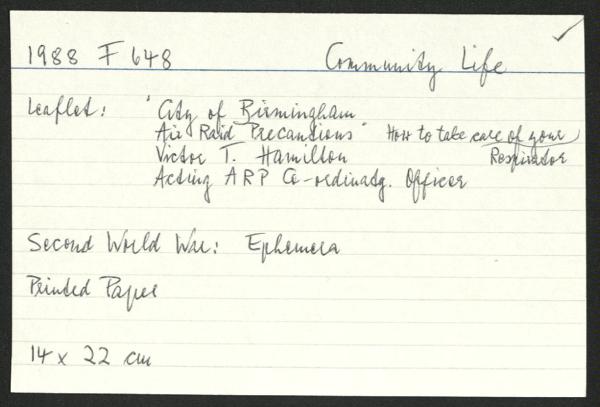 1988 F 648 Community Life
Leaflet: "City of Birmingham
Air Raid Precautions" How to take care of your
Victor T. Hamilton Respirator
Acting ARP Co-ordinatg. Officer
Second World War: Ephemera
Printed Paper
14 x 22 cm